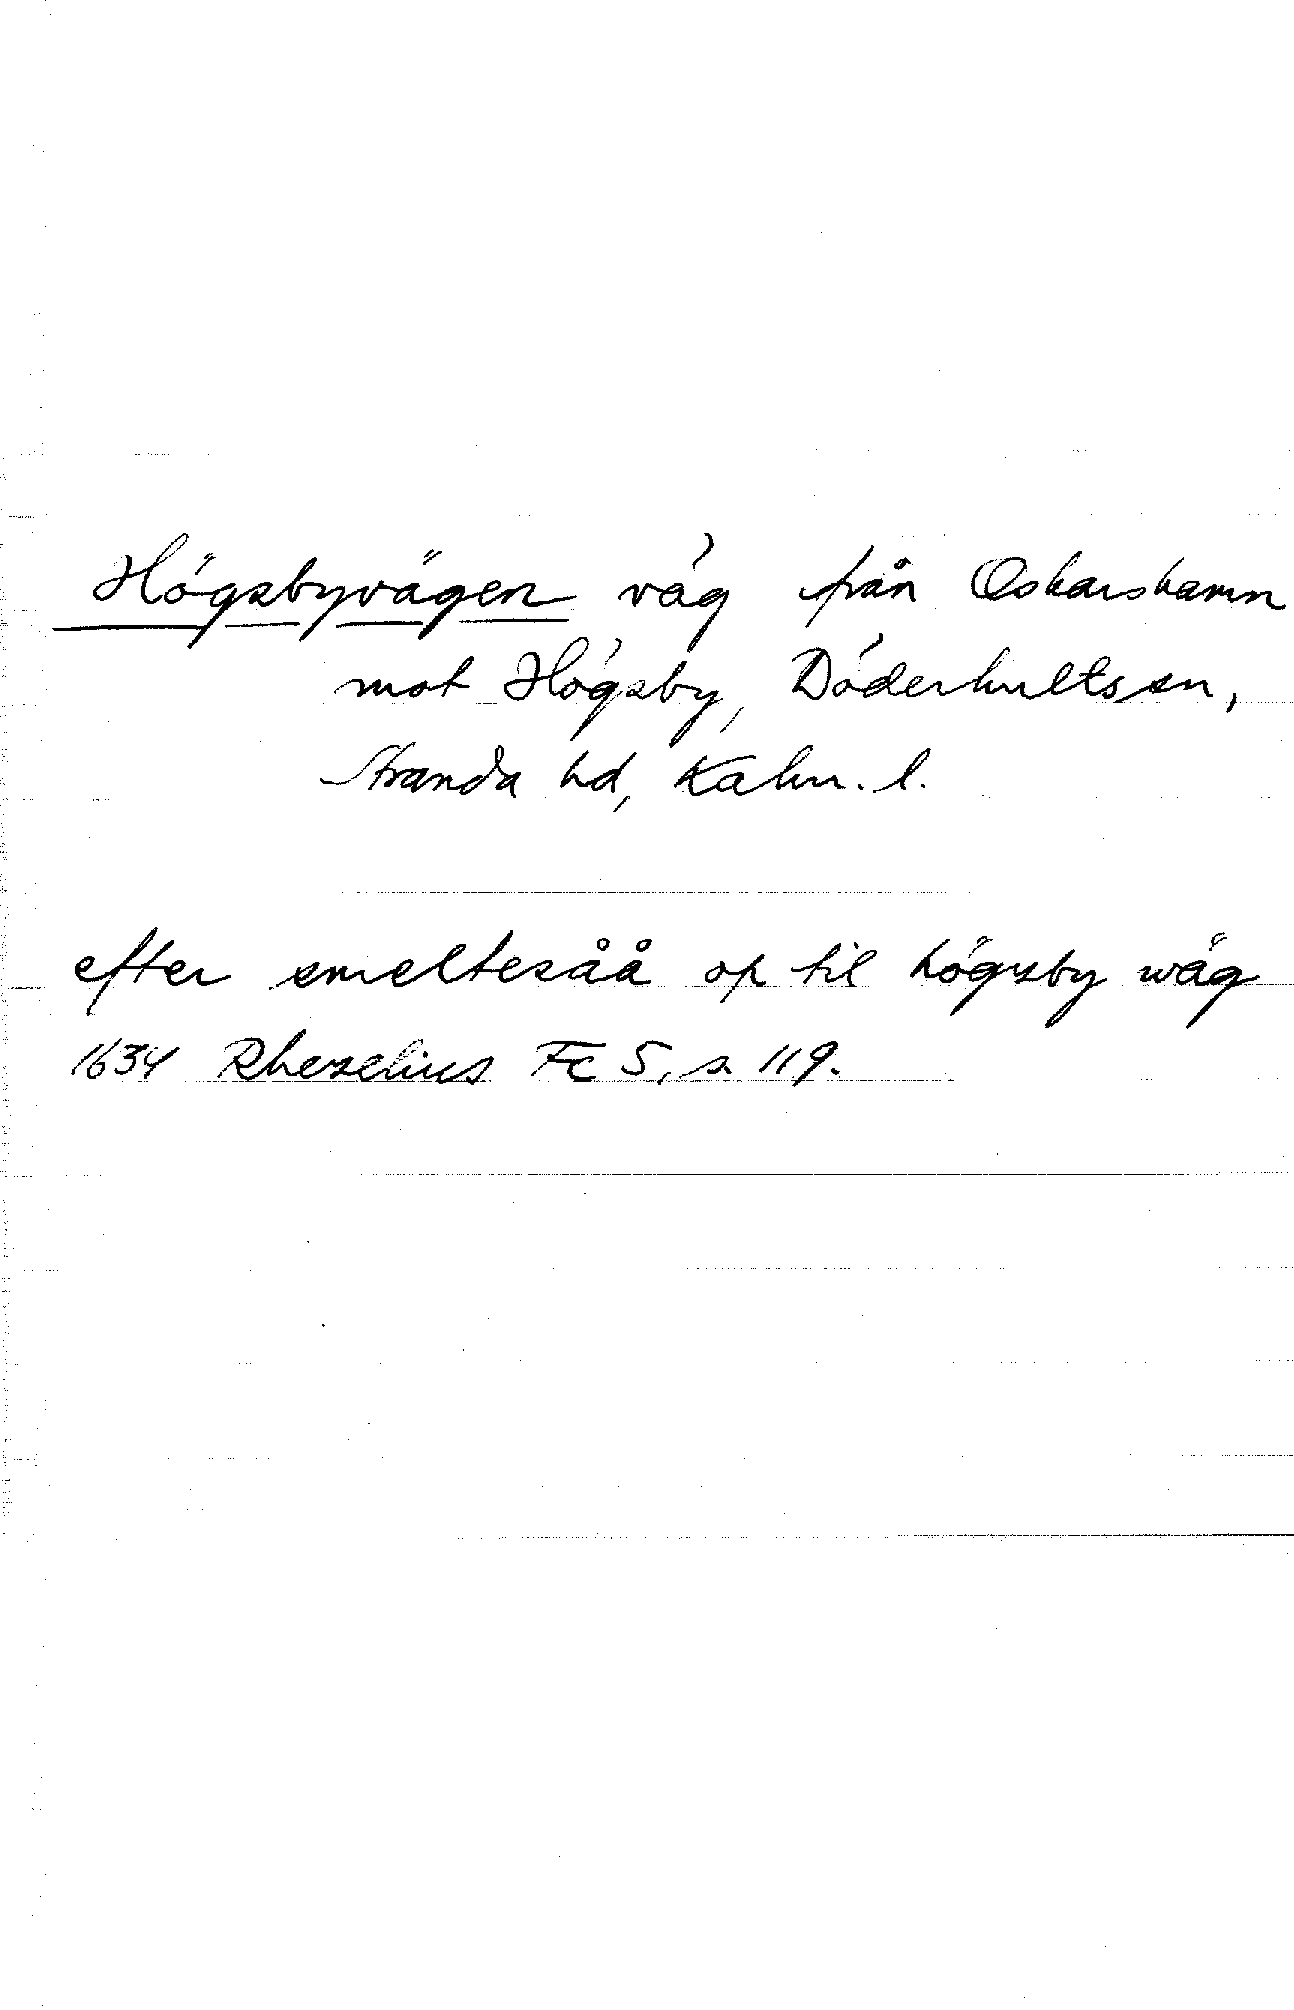 Högsbyvägen väg från Oskarshamn
mot Högsby, Döderhultssn,
Stranda hd, Kalm. l.
efter smeltesåå op til högsby wäg
1634 Rhezelius Fc 5, s. 119.